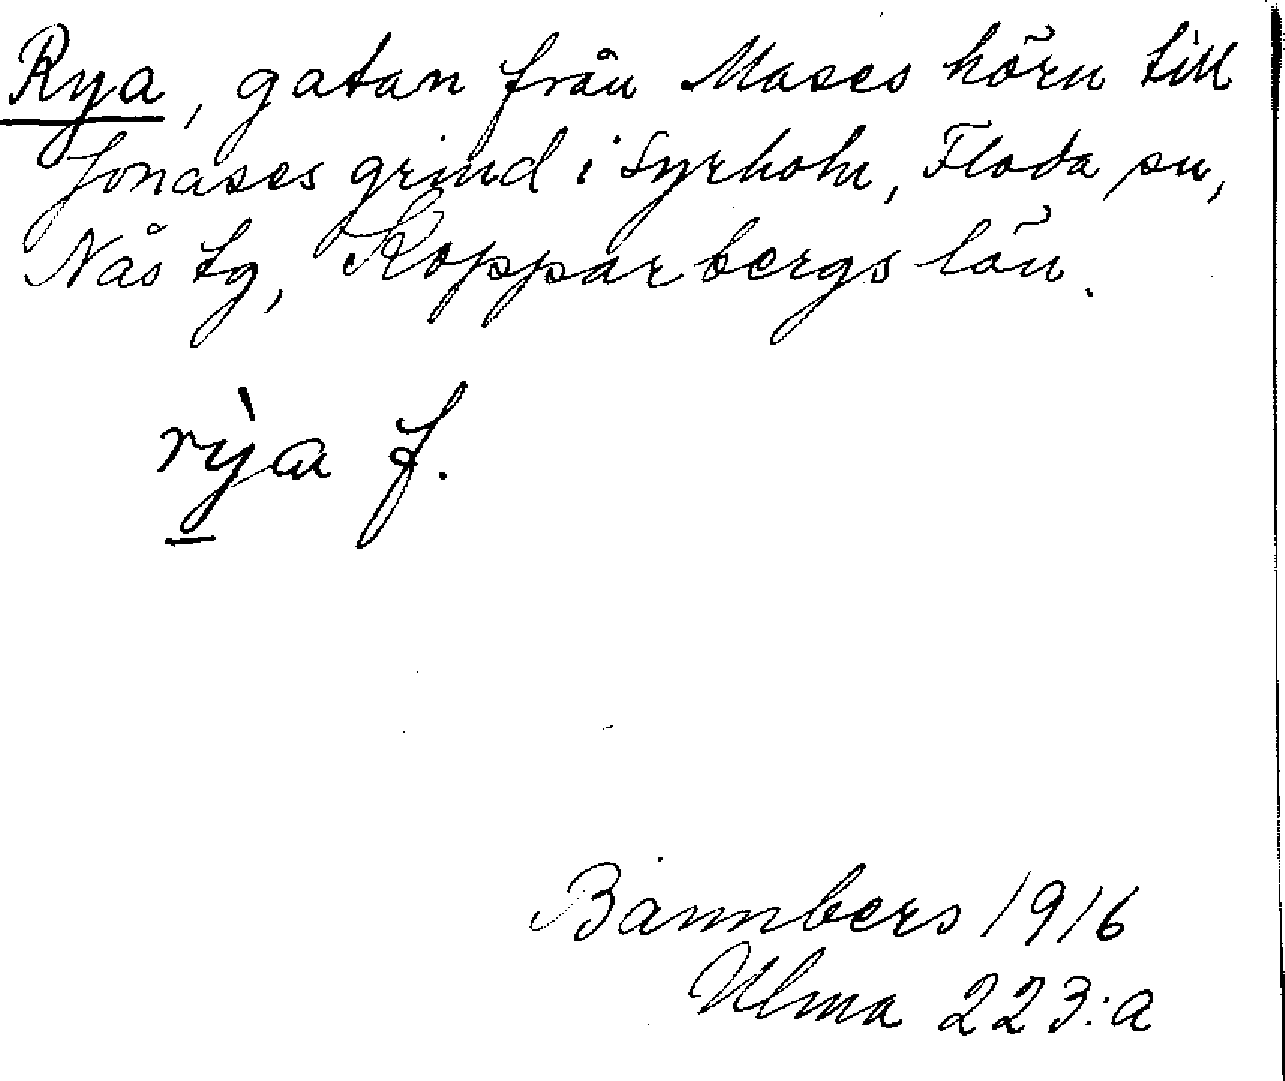 Rya, gatan från Mases hörn till
Jonases grind i Syrholn, Floda sn,
Nås tg, Kopparbergs län.
rỳa f.
Bannbers 1916
Ulma 223:a